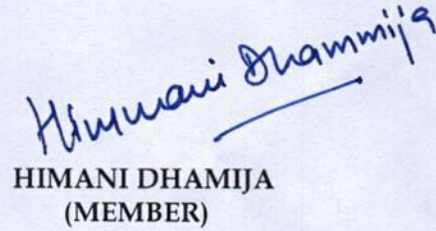 Himmani Dhammija
HIMANI DHAMIJA
(MEMBER)